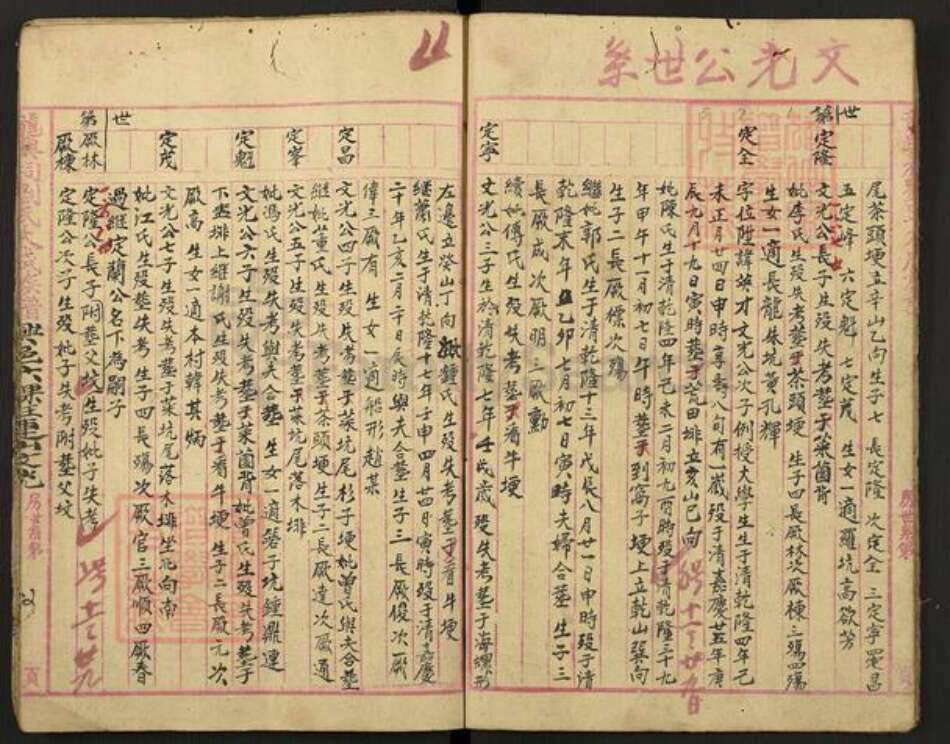 文光公世系
世
第定隆
尾茶頭埂立辛山乙向生子七 長定隆 次定全 三定寧 四定昌
五定峰 六定魁 七定茂 生女一適羅坑高欲芳
文光公長子生歿失考塟于菜茵背
妣李氏生歿失考塟于茶頭埂 生子四長厰林次厰棟三殤四殤
生女一適長龍妹坑黄孔輝
定全
字位陞諱英才文光公次子例授大學生生于清乾隆四年己
未正月廿四日申時享壽八旬有一歲歿于清嘉慶廿五年庚
辰九月十九日寅時塟于荒田排立亥山巳向
妣陳氏生于清乾隆四年己未二月初九酉時歿于清乾隆三十九
年甲午十一月初七日午時塟于到窩子埂上立乾山巽向
生子二長厰標次殤
繼妣郭氏生于清乾隆十三年戊辰八月廿一日申時歿于清
乾隆末年乙卯七月初七日寅時夫婦合塟 生子三
長厰成次厰明三厰勳
續妣傅氏生歿失考塟于看牛埂
定寧
文光公三子生於清乾隆七年壬戌歲歿失考塟于海螺形
左邊立癸山丁向 妣鍾氏生歿失考塟于看牛埂
繼蕭氏生于清乾隆十七年壬申四月廿四日寅時歿于清嘉慶
二十年乙亥二月二十日辰時與夫合塟生子三長厰俊次厰
偉三厰有 生女一適船形趙某
定昌
文光公四子生歿失考塟于菜坑尾杉子埂妣曾氏與夫合塟
繼妣黄氏生歿失考塟于茶頭埂生子二長厰達次厰通
定峯
文光公五子生歿失考塟于菜坑尾落木排
妣馮氏生歿失考與夫合塟 生女一適磜子坑鍾鼎連
定魁
文光公六子生歿失考塟于菜茵背妣曾氏生歿失考塟于
下岽排上繼謝氏生歿失考塟于看牛埂 生子二長厰元次
厰高 生女一適本村韓其炳
定茂
文光公七子生歿失考塟于菜坑尾落木排坐北向南
妣江氏生歿塟失考生子四長殤次厰官三厰順四厰春
過繼定蘭公名下為嗣子
世
第厰林
定隆公長子附塟父坟生歿妣子失考
厰棟
定隆公次子生歿妣子失考附塟父坟